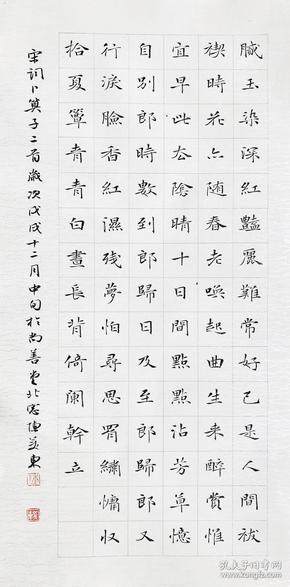 膩玉染深紅豔麗難常好已是人間祓
禊時花亦随春老喚起曲生來醉賞惟
宜早此去陰晴十日間點點沾芳草憶
自別郎時數到郎歸日及至郎歸郎又
行淚臉香紅濕殘夢怕尋思罥繡慵收
拾夏簟青青白晝長背倚闌幹立
宋詞卜算子二首歲次戊戌十二月中旬於尚善堂北窓陳東
孔夫子旧书网